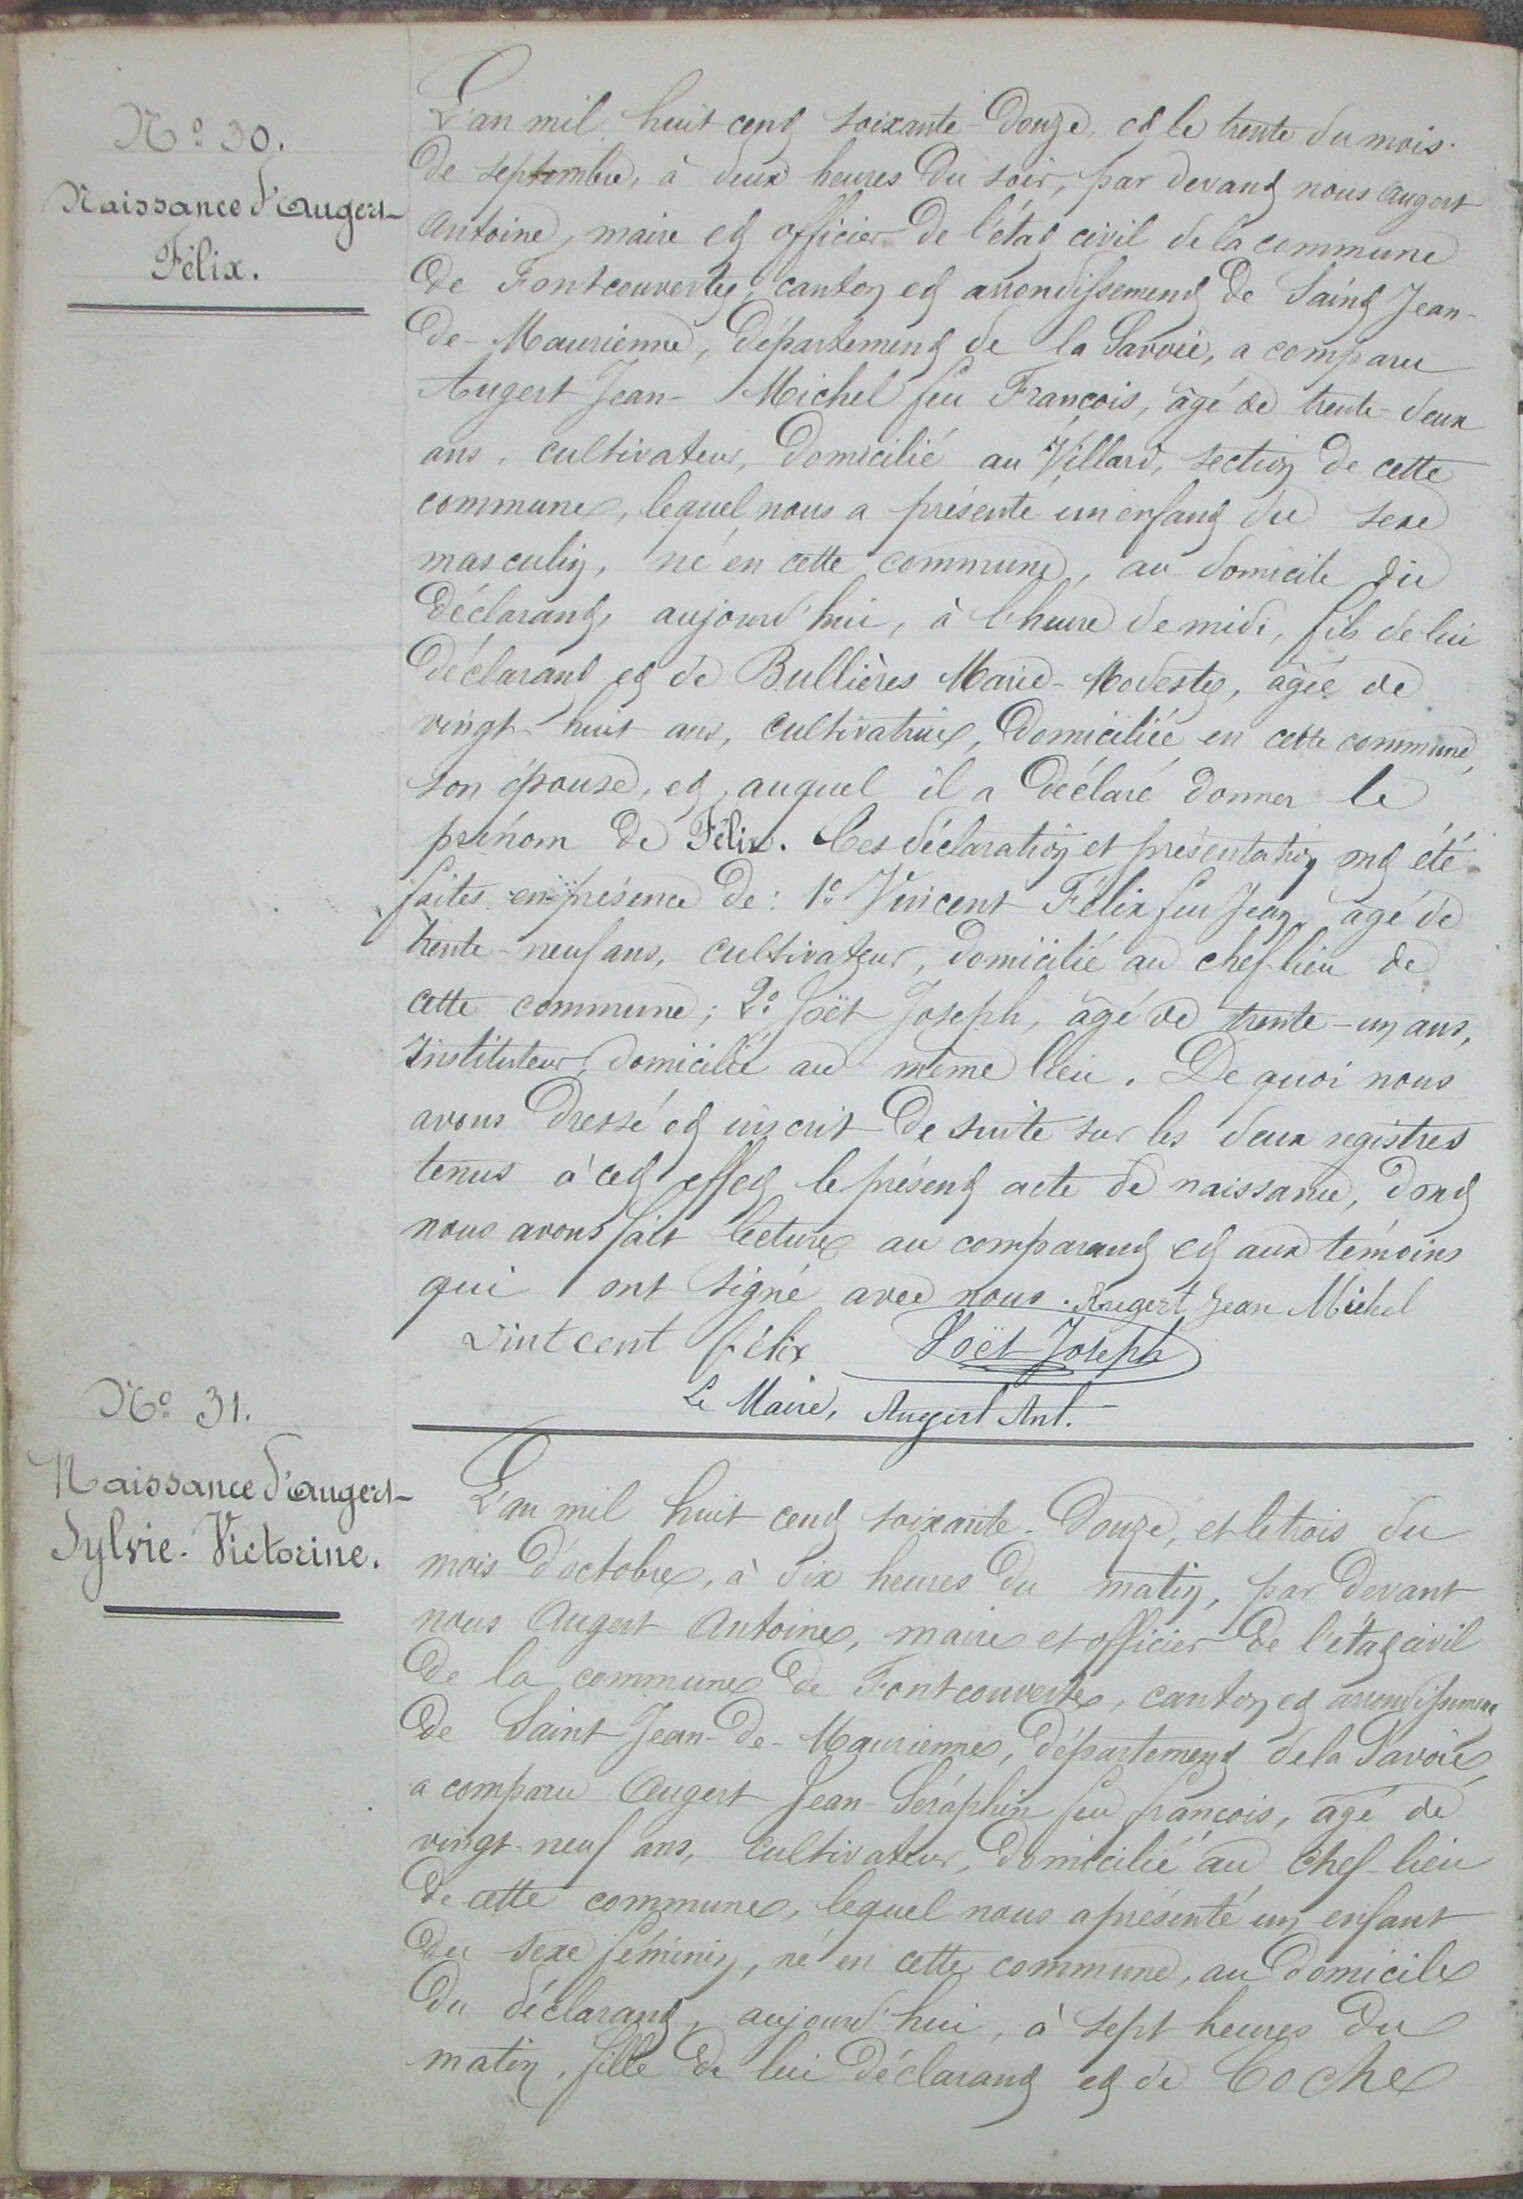 N° 30.
Naissance d'Augert
Félix.
L'an mil huit cent soixante-douze, et le trente du mois
de septembre, à deux heures du soir, par devant nous Augert
Antoine, maire et officier de l'état civil de la commune
de Fontcouverte, canton et arrondissement de Saint Jean-
de-Maurienne, département de la Savoie, a comparu
Augert Jean-Michel feu François, âgé de trente-deux
ans, cultivateur, domicilié au Villard, section de cette
commune, lequel nous a présenté un enfant du sexe
masculin, né en cette commune, au domicile du
déclarant, aujourd'hui, à l'heure de midi, fils de lui
déclarant et de Bullières Marie-Modeste, âgée de
vingt-huit ans, cultivatrice, domiciliée en cette commune,
son épouse, et auquel il a déclaré donner le
prénom de Félix. Ces déclaration et présentation ont été
faites en présence de: 1° Vincent Félix feu Jean, âgé de
trente-neuf ans, cultivateur, domicilié au chef-lieu de
cette commune; 2° Joët Joseph, âgé de trente-un ans,
Instituteur, domicilié au même lieu. De quoi nous
avons dressé et inscrit de suite sur les deux registres
tenus à cet effet le présent acte de naissance, dont
nous avons fait lecture au comparant et aux témoins
qui ont signé avec nous. Augert Jean Michel
Vintcent félix Joët Joseph
Le Maire, Augert Ant.
N° 31.
Naissance d'Augert
Sylvie-Victorine.
L'an mil huit cent soixante-douze, et le trois du
mois d'octobre, à dix heures du matin, par devant
nous Augert Antoine, maire et officier de l'état civil
de la commune de Fontcouverte, canton et arrondissement
de Saint Jean-de-Maurienne, département de la Savoie,
a comparu Augert Jean-Séraphin feu françois, âgé de
vingt-neuf ans, cultivateur, domicilié au chef-lieu
de cette commune, lequel nous a présenté un enfant
du sexe féminin, né en cette commune, au domicile
du déclarant, aujourd'hui, à sept heures du
matin, fille de lui déclarant et de Coche